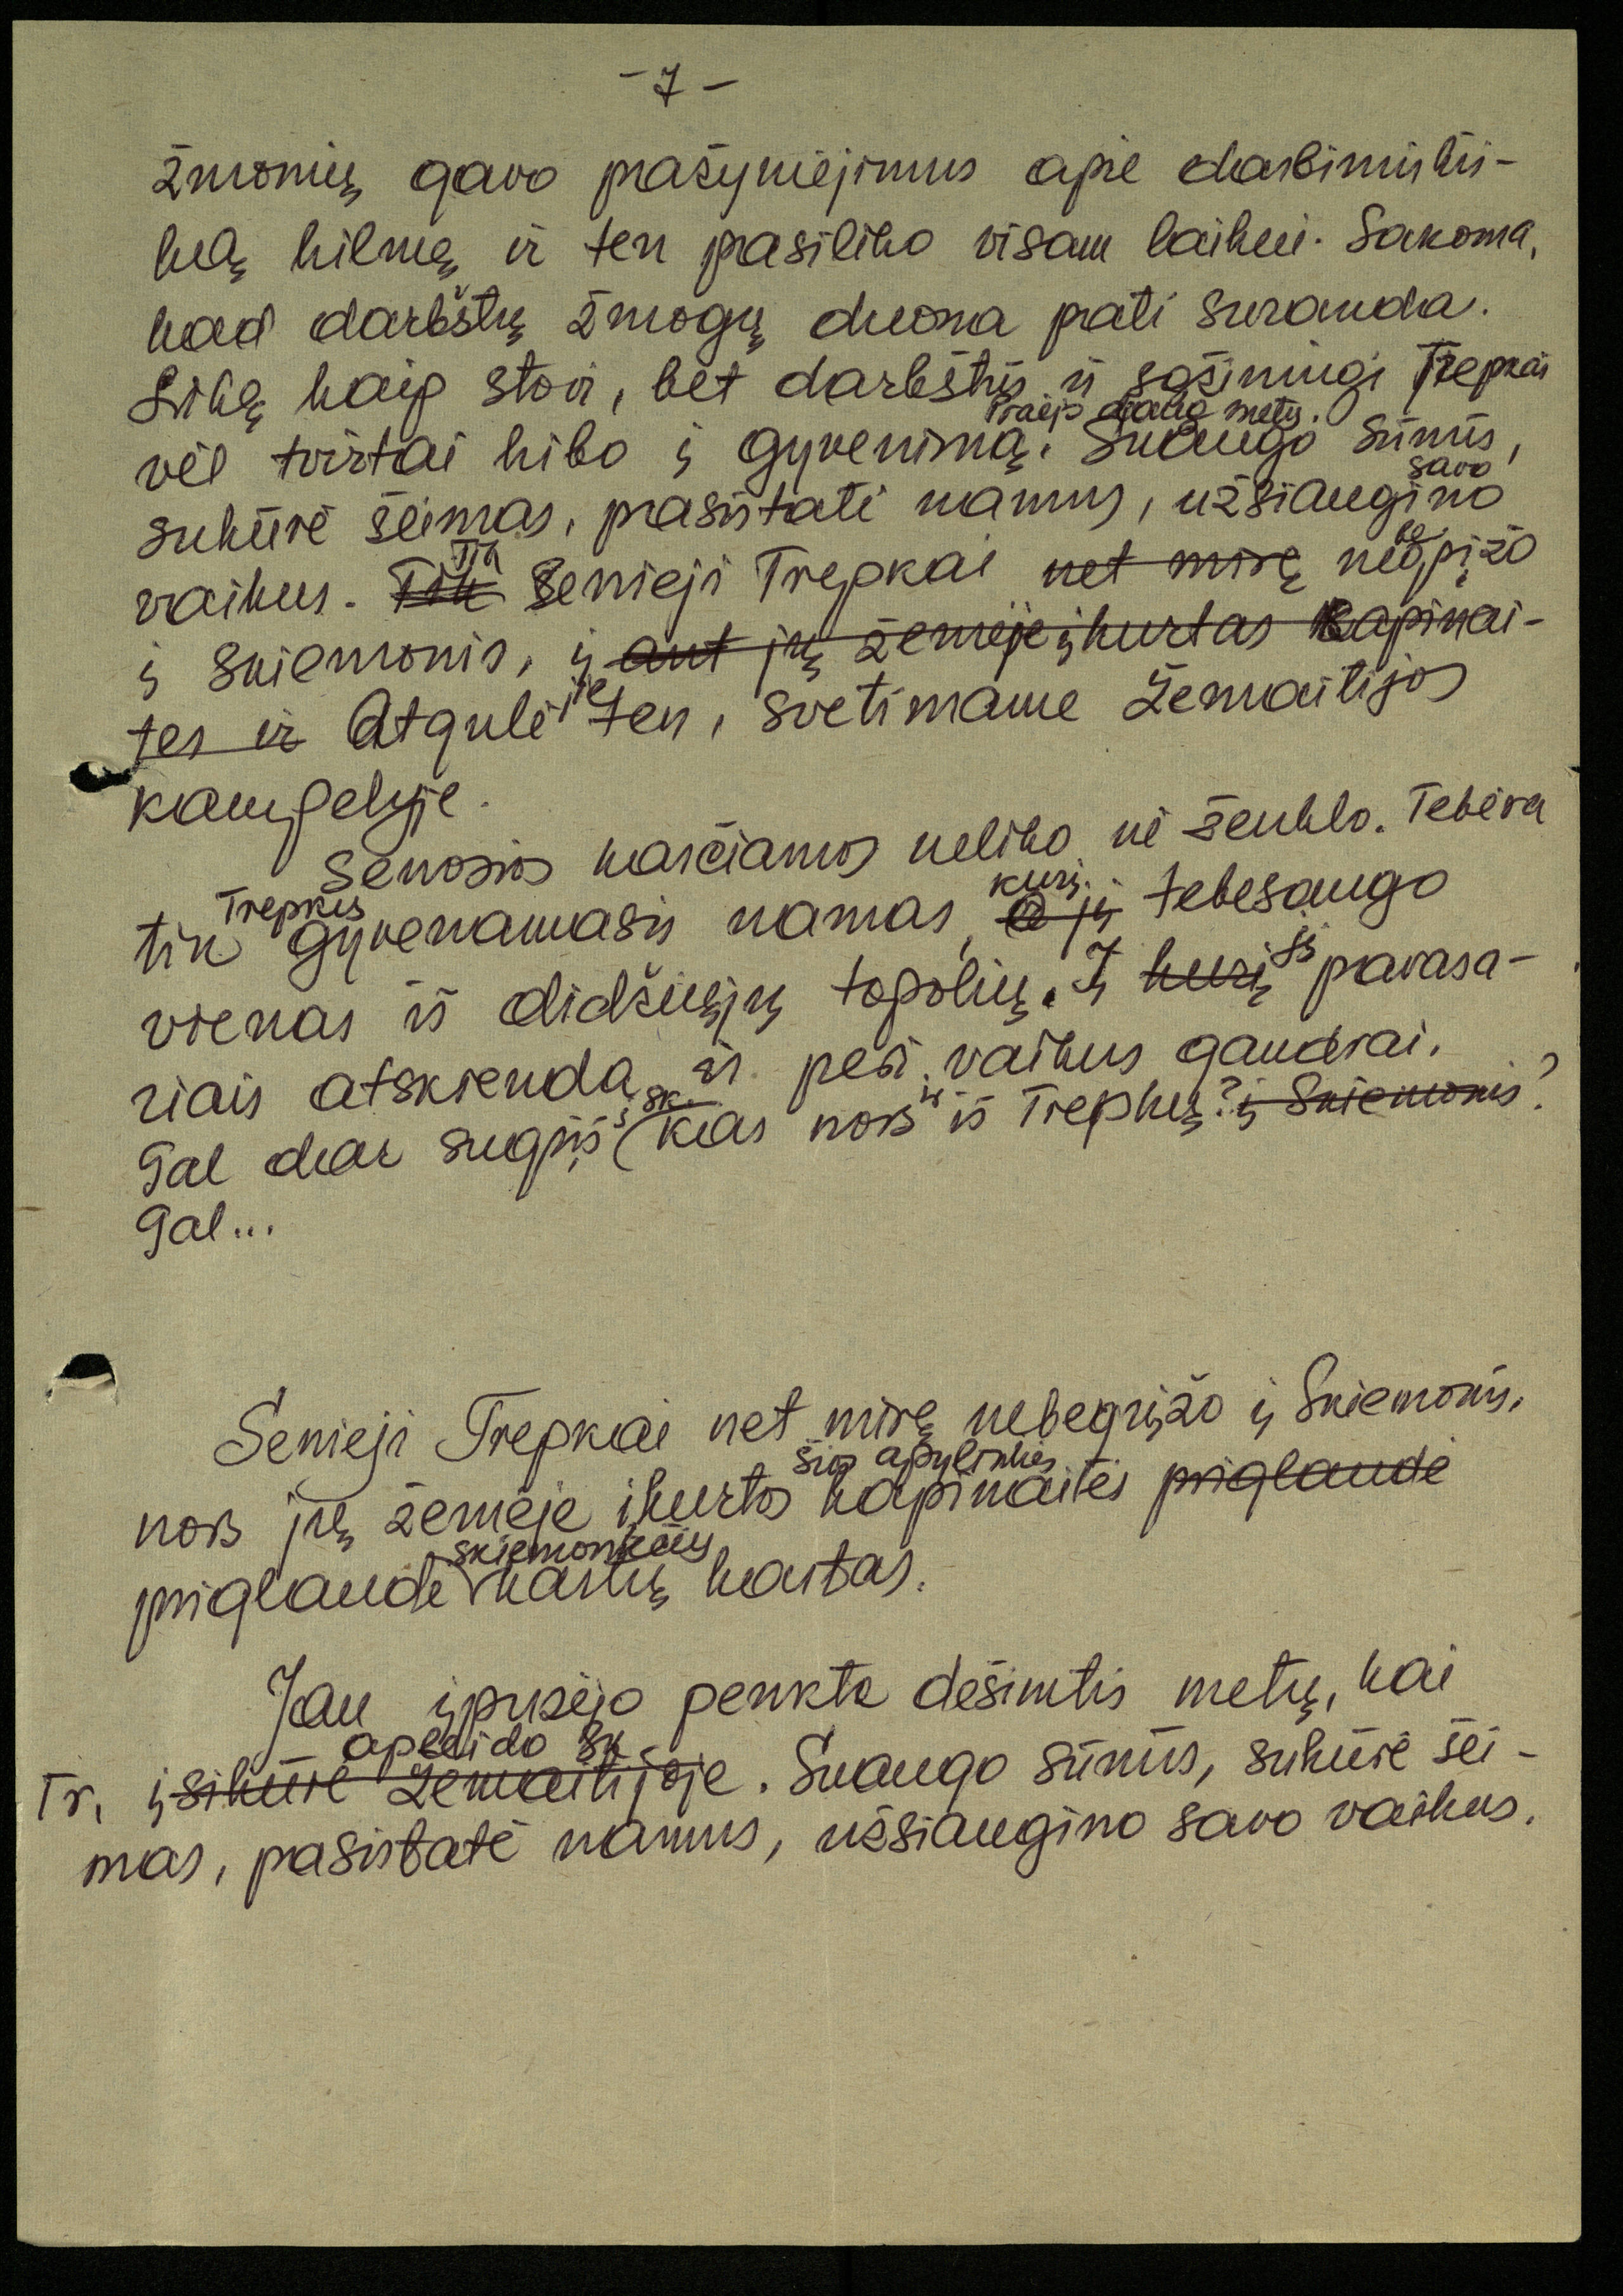 - 7 -
žmonių gavo pažymėjimus apie darbininkiš-
ką kilmę ir ten pasiliko visam laikui. Sakoma,
kad darbštų žmogų duona pati suranda.
Likę kaip stovi, bet darbštūs ir sąžiningi Trepkai
Praėjo daug metų.
vėl tvirtai kibo į gyvenimą. Suaugo sūnūs,
savo
sukūrė šeimas, pasistatė namus, užsiaugino
Tik be
vaikus. Tik Senieji Trepkai net mirę negrįžo
į Skiemonis, į ant jų žemėje įkurtas kapinai-
tes ir Atgulė jie ten, svetimame Žemaitijos
kampelyje.
Senosios karčiamos neliko nė ženklo. Tebėra
Trepkų kurį
tik gyvenamasis namas, o jį tebesaugo
jį
vienas iš didžiųjų topolių. Į kurį pavasa-
riais atskrenda ir peri vaikus gandrai.
į Sk.
Gal dar sugrįš kas nors iš Trepkų? į Skiemonis?
Gal...
Senieji Trepkai net mirę nebegrįžo į Skiemonis,
šios apylinkės
nors jų žemėje įkurtos kapinaitės priglaudė
skiemoniečių
priglaudė kartų kartas.
Jau įpusėjo penkta dešimtis metų, kai
apleido Sk
Tr. įsikūrė Žemaitijoje. Suaugo sūnūs, sukūrė šei-
mas, pasistatė namus, užsiaugino savo vaikus.